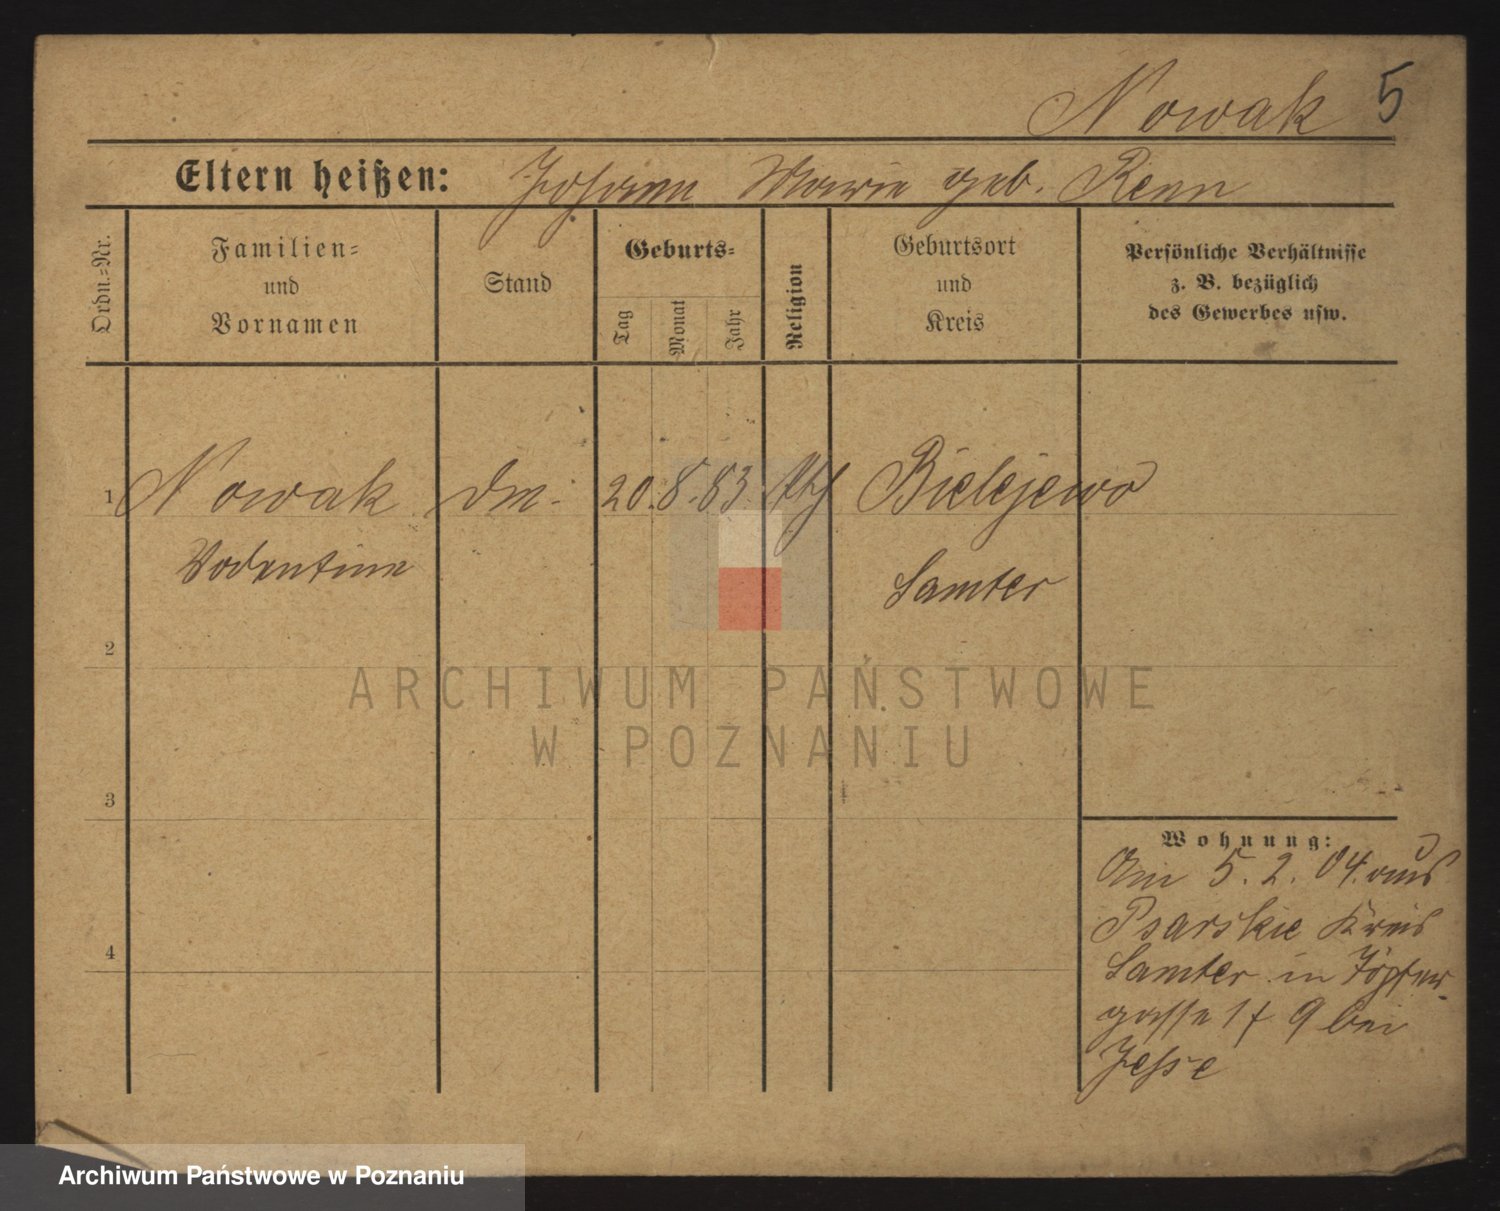 Nowak 5
Eltern heißen: Johann Marie geb. Renn
Ordn.=Nr.
Familien=
und
Vornamen
Stand
Geburts=
Tag
Monat
Jahr
Religion
Geburtsort
und
Kreis
Persönliche Verhältnisse
z. B. bezüglich
des Gewerbes usw.
1 Nowak 20. 8. 83. kth Bielejewo
Samter
2
3
4
Wohnung:
Am 5. 2. 04. aus
Psarskie Kreis
Samter in Töpfer-
gasse 9 bei
Jesse
ARCHIWUM PAŃSTWOWE
W POZNANIU
Archiwum Państwowe w Poznaniu